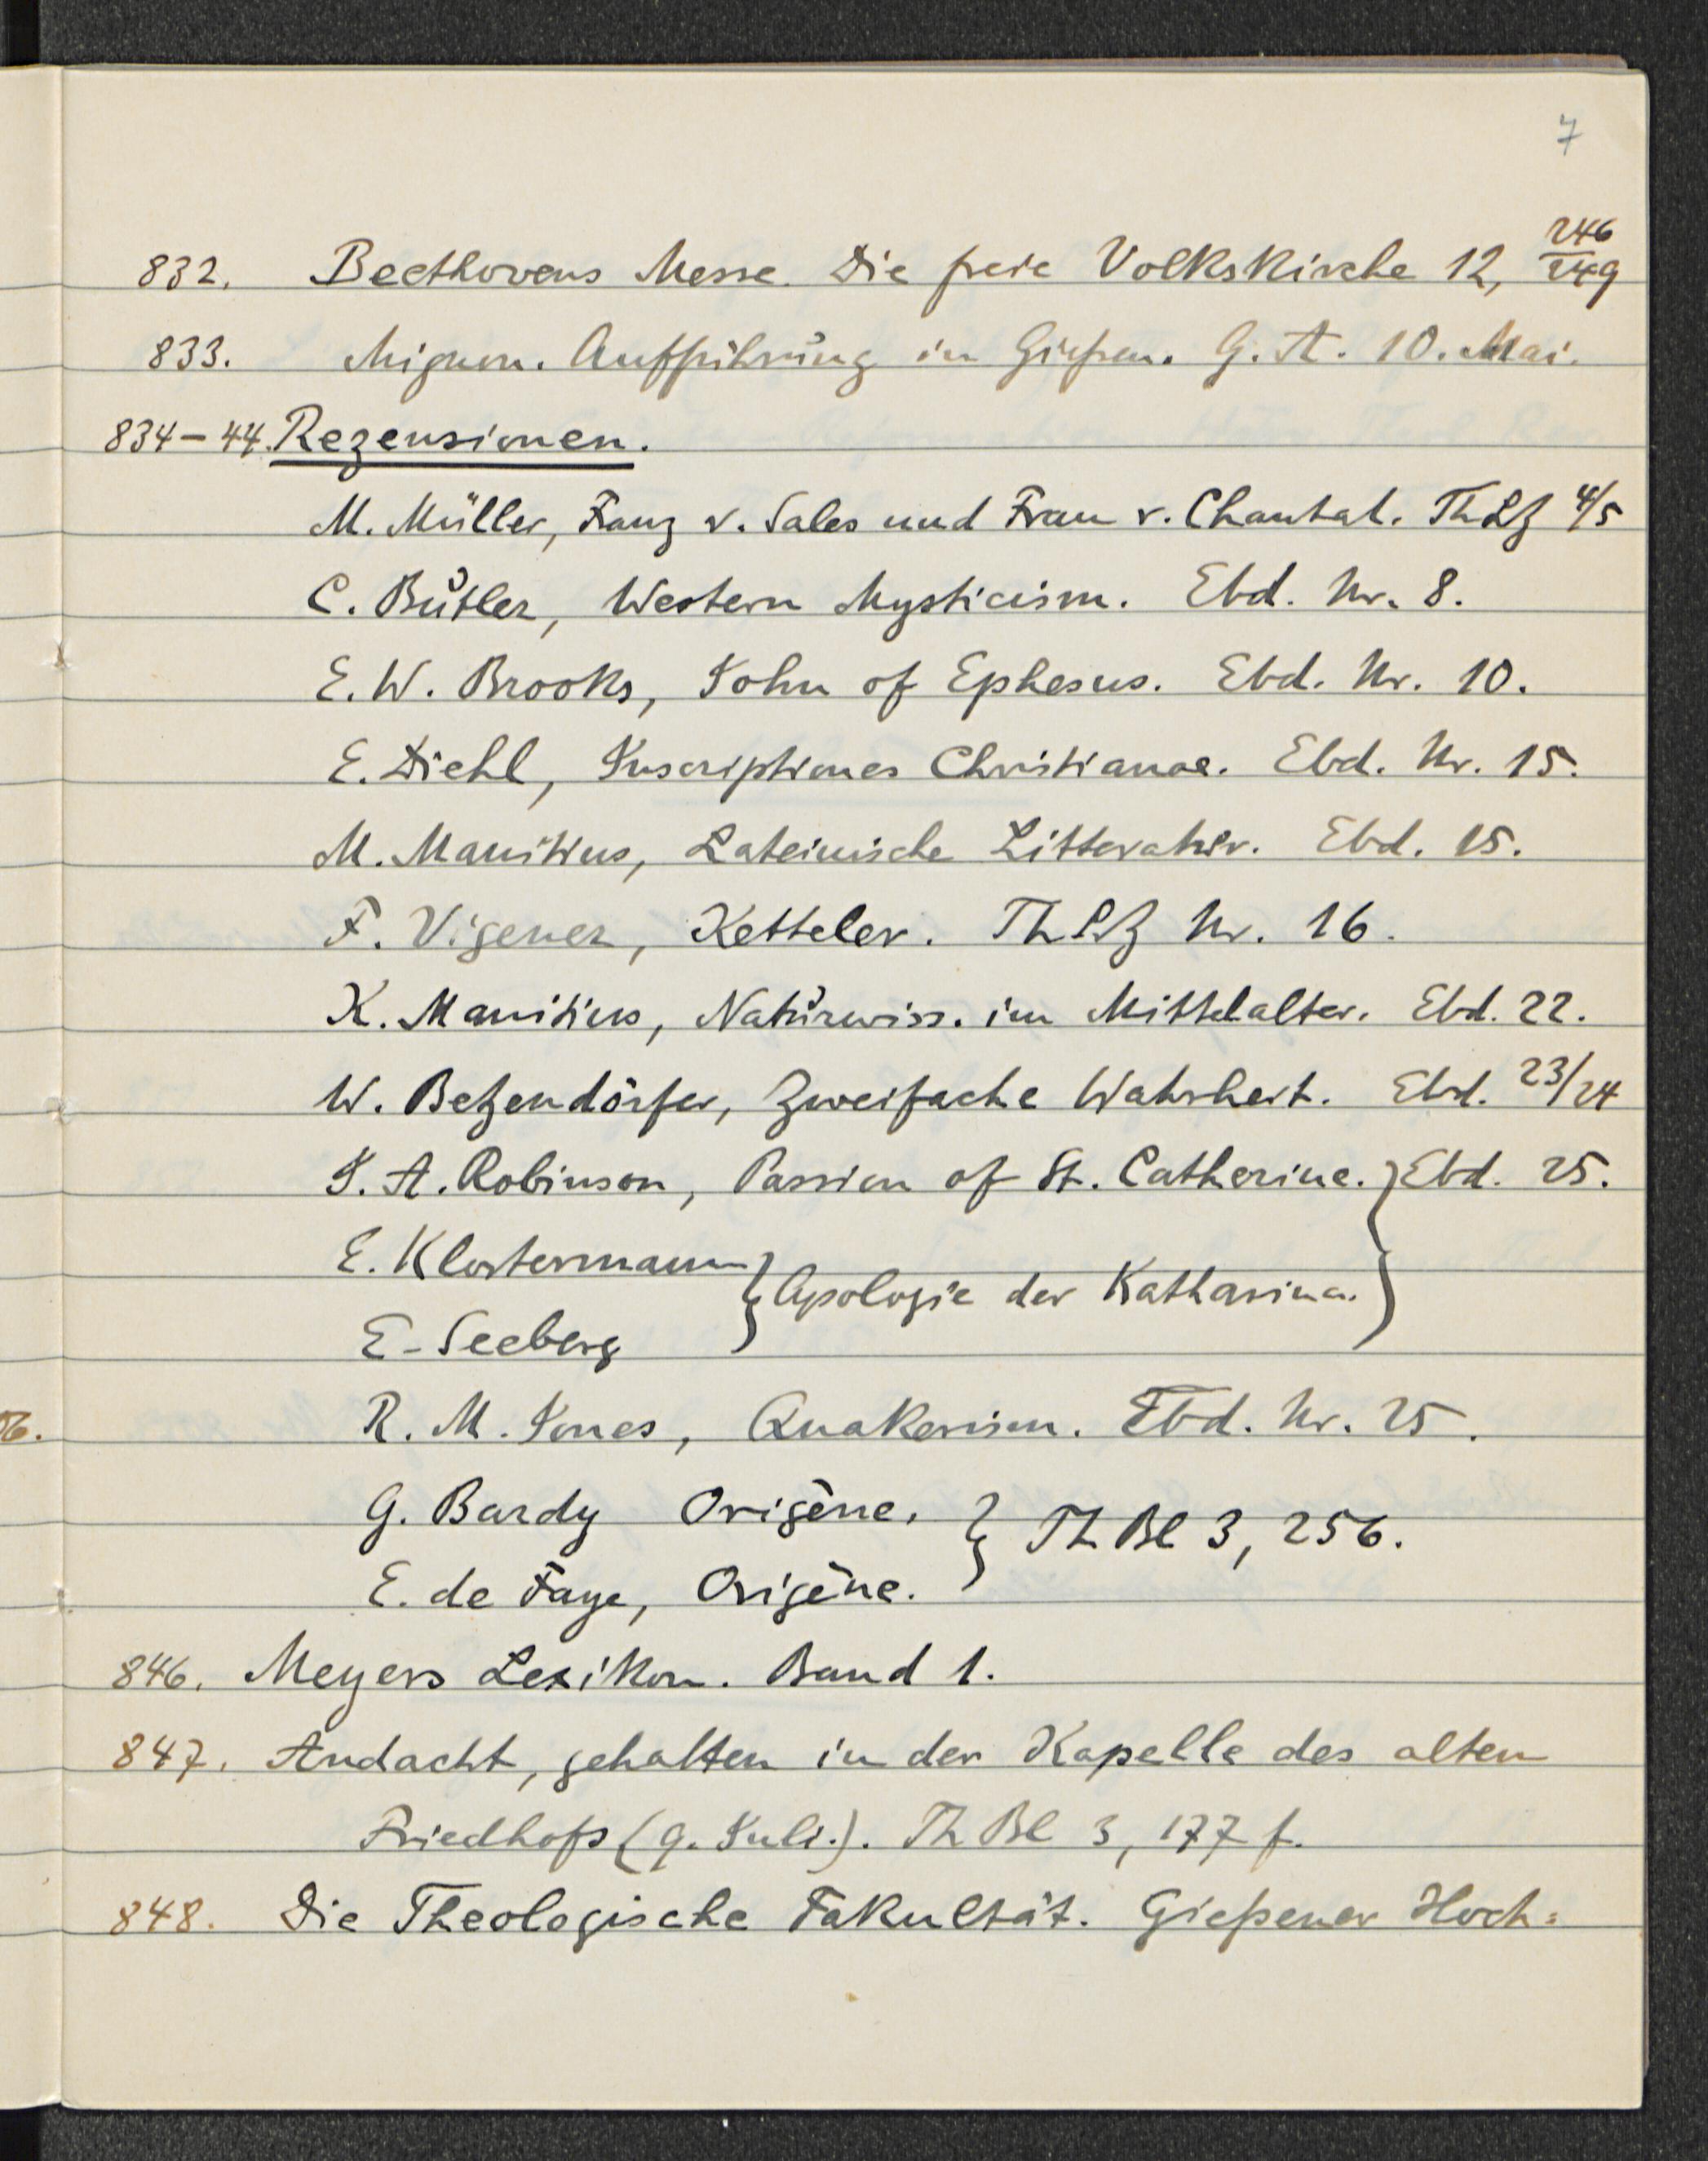 7
832. Beethovens Messe. Die freie Volkskirche 12, 246/249
833. Mignon. Aufführung in Gießen. G. A. 10. Mai.
834-44. Rezensionen.
M. Müller, Franz v. Sales und Frau v. Chantal. ThLZ 4/5
C. Butler, Western Mysticism. Ebd. Nr. 8.
E. W. Brooks, John of Ephesus. Ebd. Nr. 10.
E. Diehl, Inscriptiones Christianae. Ebd. Nr. 15.
M. Manitius, Lateinische Litteratur. Ebd. 15.
F. Vigener, Ketteler. ThLZ Nr. 16.
K. Manitius, Naturwiss. im Mittelalter. Ebd. 22.
W. Betzendörfer, Zweifache Wahrheit. Ebd. 23/24
J. A. Robinson, Passion of St. Catherine. } Ebd. 25.
E. Klostermann
} Apologie der Katharina. }
E. Seeberg
R. M. Jones, Quakerism. Ebd. Nr. 25.
G. Bardy Origène. } Th Bl 3, 256.
E. de Faye, Origène.
846. Meyers Lexikon. Band 1.
847. Andacht, gehalten in der Kapelle des alten
Friedhofs (9. Juli.). Th Bl 3, 177 f.
848. Die Theologische Fakultät. Gießener Hoch=